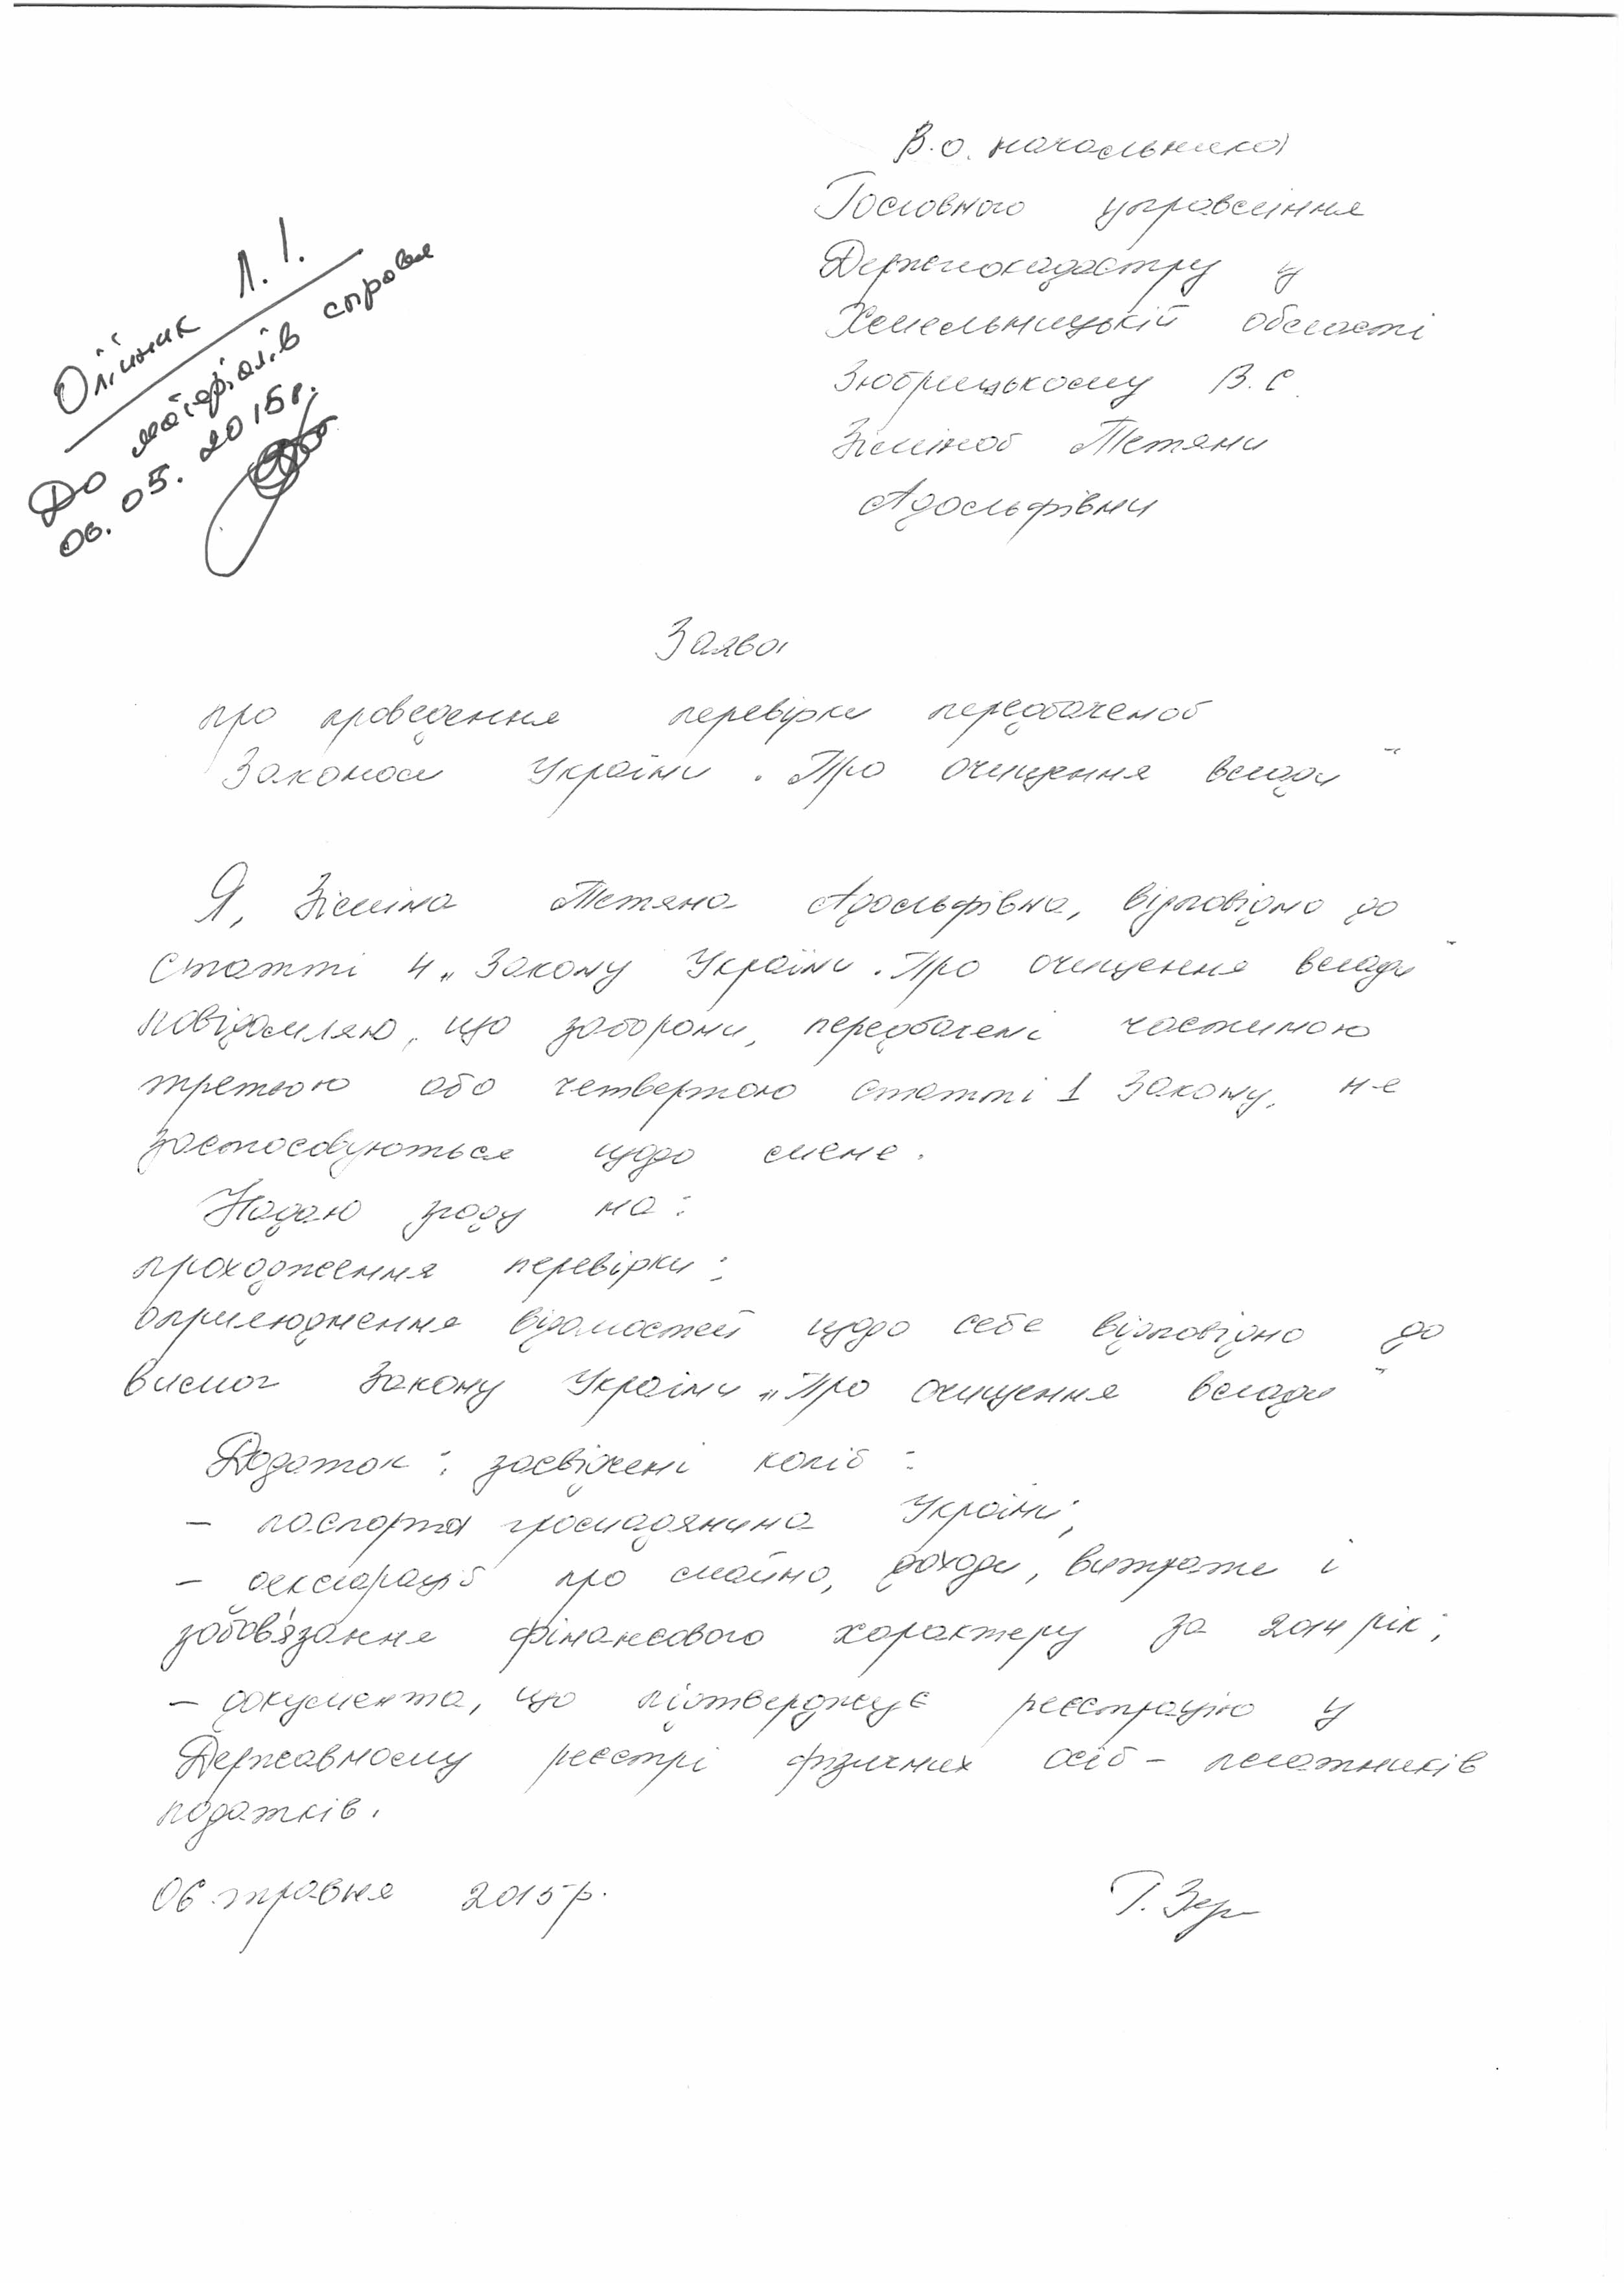 В.о. начальника
Головного управління
Держгеокадастру у
Хмельницькій області
Зюбрицькому В.С.
Зіміної Тетяни
Адольфівни
Олійник Л.І.
До матеріалів справи
06.05.2015р.
Заява
про проведення перевірки передбаченої
Законом України „Про очищення влади"
Я, Зіміна Тетяна Адольфівна, відповідно до
статті 4 „Закону України „Про очищення влади"
повідомляю, що заборони, передбачені частиною
третьою або четвертою статті 1 Закону, не
застосовуються щодо мене.
Надаю згоду на:
проходження перевірки;
оприлюднення відомостей щодо себе відповідно до
вимог Закону України „Про очищення влади"
Додаток: засвідчені копії:
- паспорта громадянина України;
- декларації про майно, доходи, витрати і
зобов'язання фінансового характеру за 2014 рік;
- документа, що підтверджує реєстрацію у
Державному реєстрі фізичних осіб - платників
податків.
06 травня 2015р.